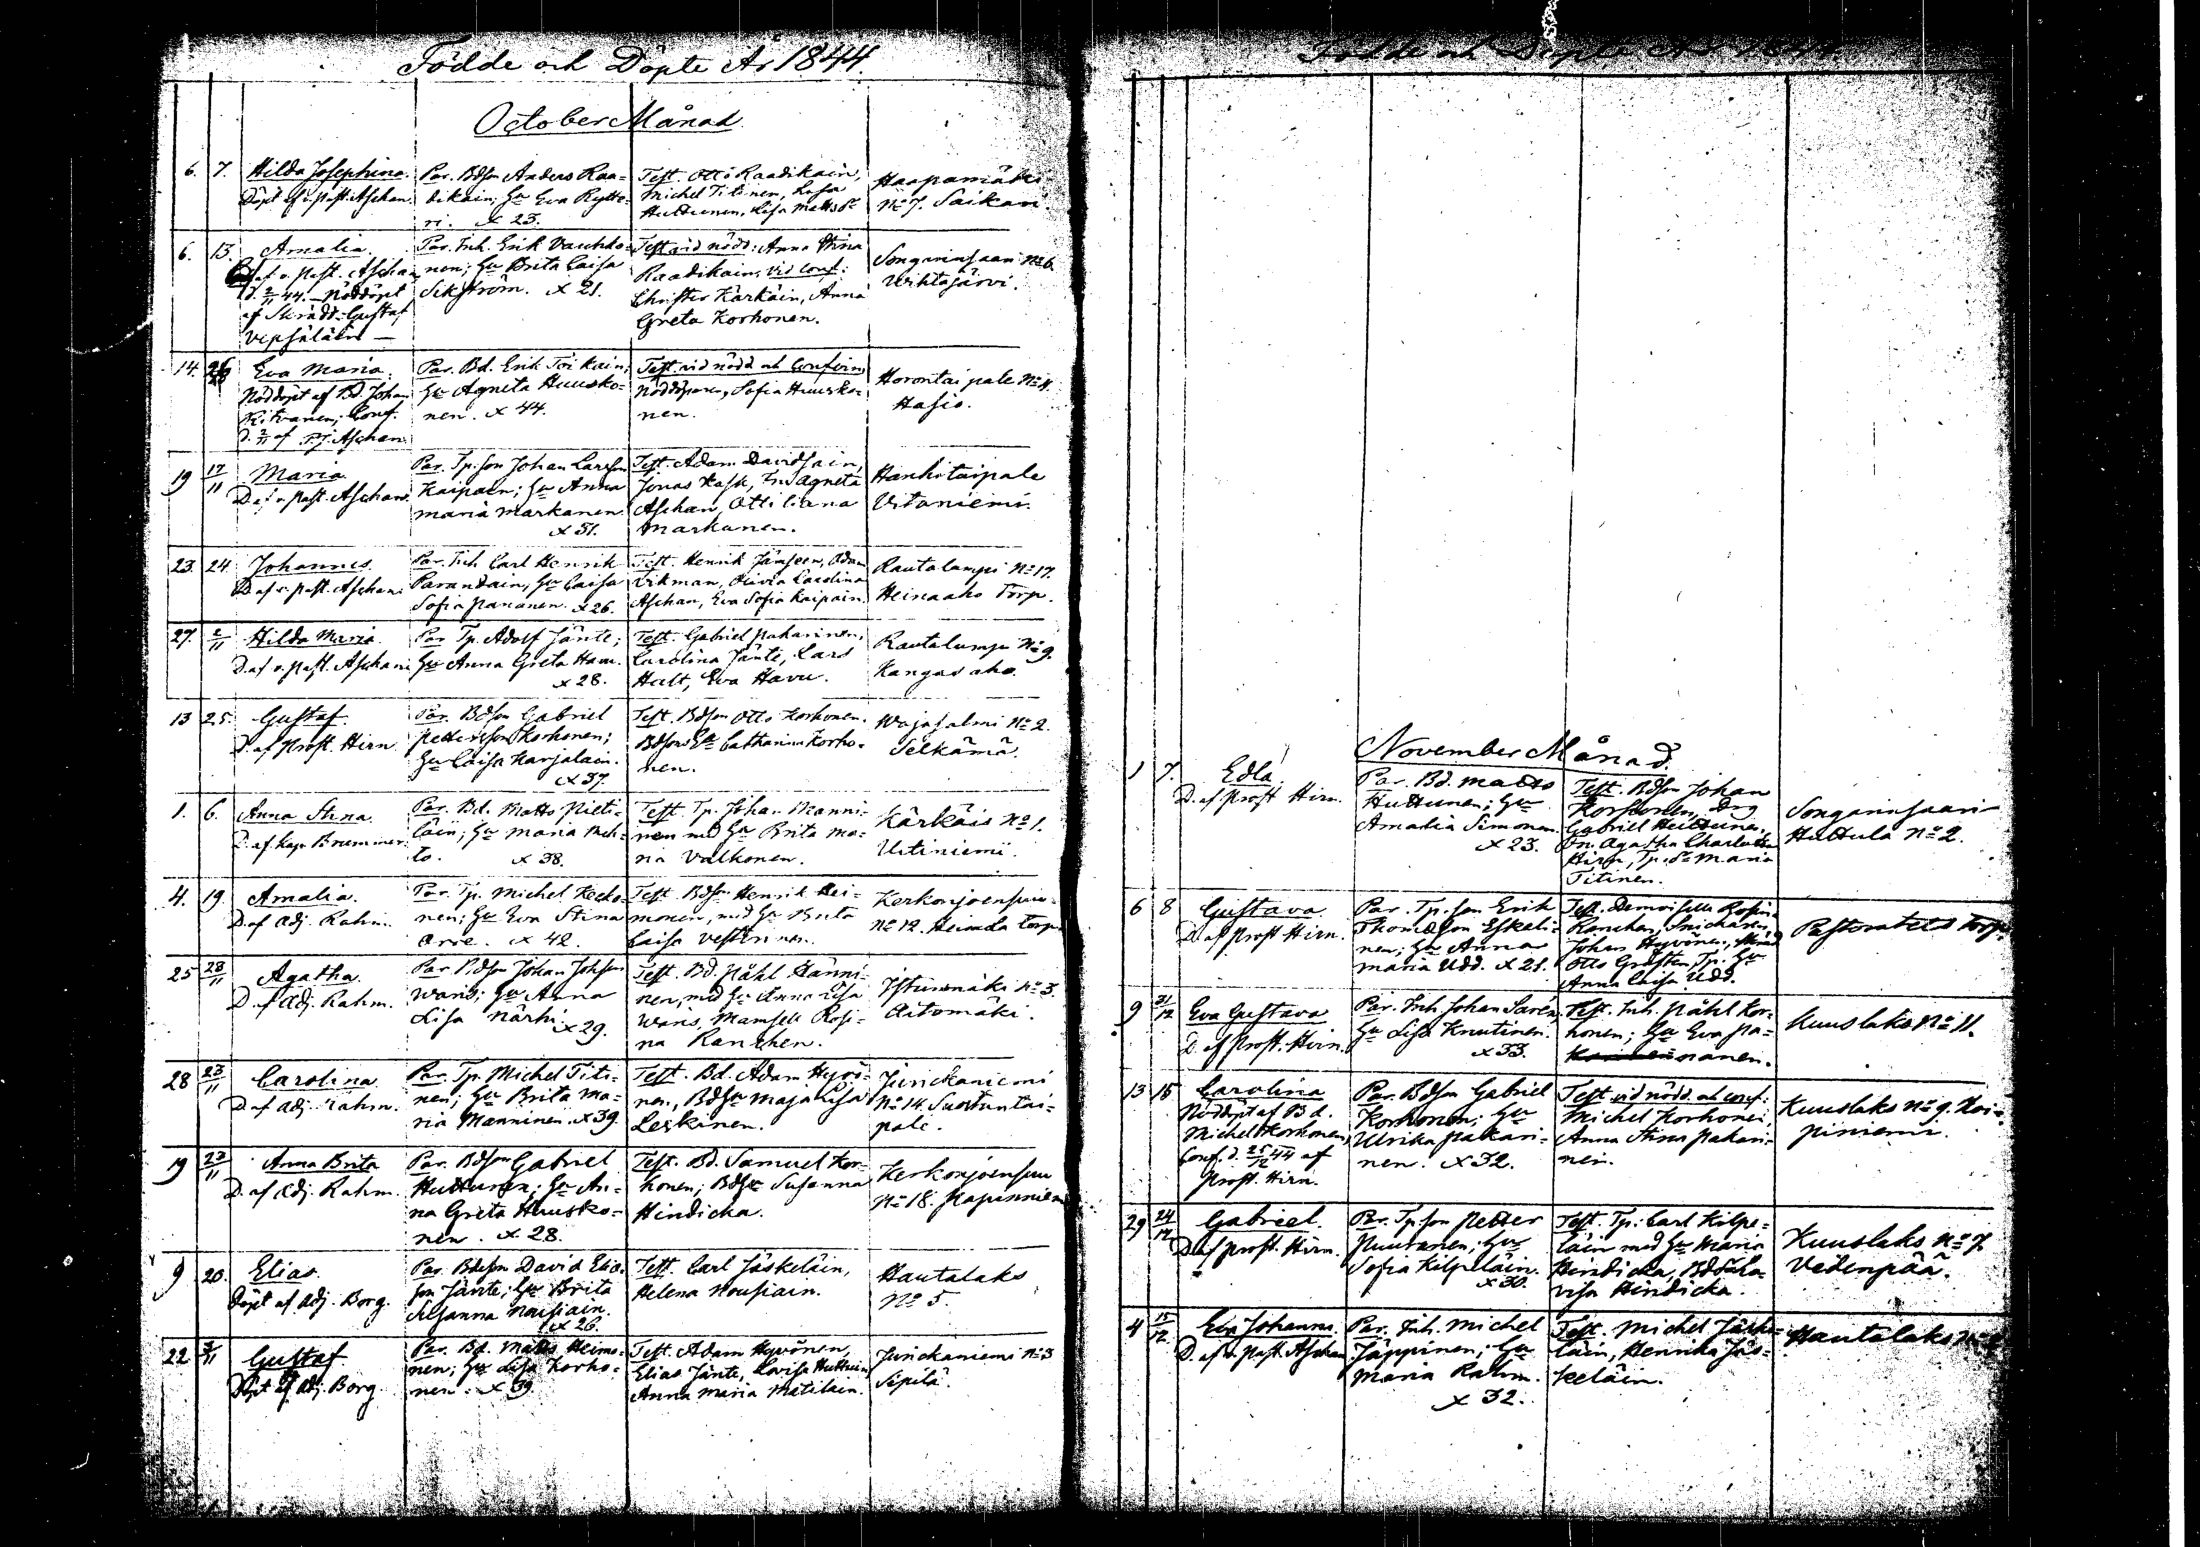 Födde och Döpte År 1844.
October Månad.
6. 7. Hilda Josephina. Par. Bdson Anders Raa- Test. Otto Raadikain, Haapamäki
Döpt af v. Past. Aschan. dikain; Hu Eva Rytte- Michel Titinen, Lisa No 7. Saikari.
ri. x 23. Huttunen, Lisa Matts Dr
6. 13. Amalia. Par. Inh. Erik Vauhko- Test. vid nödd: Anna Stina Songarinsaari No 6.
Döpt af v. Past. Aschan nen; Hu Brita Caisa Raadikain; vid Conf: Wihtajärvi.
d. 2/11 44. Nöddöpt Sikström. x 21. Christer Kärkäin, Anna
af Skrädd. Gustaf Greta Korhonen.
Vepsäläin —
14. Eva Maria. Par. Bd. Erik Toikain; Test. vid nödd och Confirm Horontaipale No 4.
Nöddöpt af Bd. Johan Hu Agneta Huusko- Nöddöparen, Sofia Huusko- Hasio.
Ritvanen; Conf. nen. x 44. nen.
d. 2/11 af v. P. Aschan
19 17/11 Maria Par. Tp. son Johan Larsson Test. Adam Davidsain, Hankitaipale
D. af v. Past. Aschan. Kaipain; Hu Anna Jonas Hask, Fru Agneta Uitoniemi.
Maria Markanen Aschan, Ottiliana
x 31. Markanen.
23. 24. Johannes. Par. Inh. Carl Henrik Test. Henrik Jämseen, Adam Rautalampi No 17.
D. af v. Past. Aschan. Parandain; Hu Caisa Vikman, Olivia Carolina Heinaaho Torp.
Sofia Pananen. x 26. Aschan, Eva Sofia Kaipain.
27. 2/11 Hilda Maria. Par. Tp. Adolf Jänte; Test. Gabriel Pakarinen, Rautalampi No 9.
D. af v. Past. Aschan Hu Anna Greta Ham. Carolina Jänte, Lars Kangasaho.
x 28. Halt, Eva Havu.
13 25. Gustaf. Par. Bdson Gabriel Test. Bdson Otto Korhonen. Wajasalmi No 2.
D. af Prost. Hirn Pettersson Korhonen; Bdson Dr Catharina Korho- Selkämä.
Hu Caisa Karjalain. nen.
x 37.
1. 6. Anna Stina. Par. Bd. Matts Pieti- Test. Tp. Johan Manni- Kärkäis No 1.
D. af Kap. Brummer. läin; Hu Maria Meh- nen med Hu Brita Ma- Uitiniemi.
to. x 38. ria Valkonen.
4. 19. Amalia. Par. Tp. Michel Kecko- Test. Bdson Henrik Hei- Kerkonjoensuu
D. af Adj. Rahm. nen; Hu Eva Stina monen, med Hu Brita No 12. Heimola Torp
Arve. x 42. Caisa Vesterinen.
25 28/11 Agatha. Par. Bdson Johan Johsson Test. Bd. Påhl Hänni- Istunmäki No 3.
D. af Adj. Rahm. Waris; Hu Anna nen, med Hu Anna Lisa Aitomäki.
Lisa Närhi x 29. Waris, Mamsell Rosi-
na Ranchen.
28 23/11 Carolina. Par. Tp. Michel Titi- Test. Bd. Adam Hyvö- Jurickaniemi
D. af Adj. Rahm. nen; Hu Brita Ma- nen, Bdhu Maja Lisa No 14. Suontuntai-
ria Manninen. x 39. Leskinen. pale.
19 23/11 Anna Brita Par. Bdson Gabriel Test. Bd. Samuel Kor- Kerkonjoensuu
D. af Adj. Rahm. Huttunen; Hu An- honen; Bdhu Susanna No 18. Hapinniemi
na Greta Huusko- Hindicka.
nen. x 28.
9 20. Elias. Par. Bdsson David Elia- Test. Carl Jäskeläin, Hautalaks
Döpt af Adj. Borg. son Jänte; Hu Brita Helena Nousiain. No 5.
Susanna Nousiain.
x 26.
22 3/11 Gustaf Par. Bd. Matts Heimo- Test. Adam Hyvönen, Jurickaniemi No 3
Döpt af Adj. Borg. nen; Hu Lisa Korho- Elias Jänte, Lovisa Huttunen Sipilä.
nen. x 39. Anna Maria Matilain.
Födde och Döpte År 1844.
November Månad.
1 7. Edla. Par. Bd. Matts Test. Bdson Johan Songarinsaari
D. af Prost Hirn. Huttunen; Hu Korhonen, Drg Huttula No 2.
Amalia Simonen. Gabriel Huttunen,
x 23. Agatha Charlotta
Hirn, Tp. Dr Maria
Titinen.
6 8 Gustava. Par. Tp. son Erik Test. Demoiselle Rosina Pastoratets Torp.
D. af Prost Hirn. Thomasson Eskeli- Ranchen, Snickaren
nen; Hu Anna Johan Hyvönen,
Maria Udd. x 21. Otto Gröstan, Tp. Hu
Anna Caisa Udd.
9 31/12 Eva Gustava Par. Inh. Johan Sarén. Test. Inh. Påhl Kor- Kuuslaks No 11.
D. af Prost. Hirn. Hu Lisa Knutinen. honen; Hu Eva Pa-
x 33. nanen.
13 15 Carolina Par. Bdson Gabriel Test vid nödd. och conf: Kuuslaks No 9. Koi-
Nöddöpt af Bd. Korhonen; Hu Michel Korhonen, piniemi.
Michel Korhonen, Ulrika Pakari- Anna Stina Pakari-
Conf. d. 25/12 44 af nen. x 32. nen.
Prost. Hirn.
29 24/12 Gabriel. Par. Tp. son Petter Test. Tp. Carl Kilpe- Kuuslaks No 7.
D. af Prost. Hirn. Puuranen; Hu läin med Hu Maria Vedenpää.
Sofia Kilpeläin. Hindicka, Bd Dr Lo-
x 30. visa Hindicka.
4 15/12. Eva Johanna. Par. Inh. Michel Test. Michel Jäske- Hautalaks
D. af v. Past. Aschan Jäppinen; Hu läin, Henrika Jäs-
Maria Rahm. keläin.
x 32.